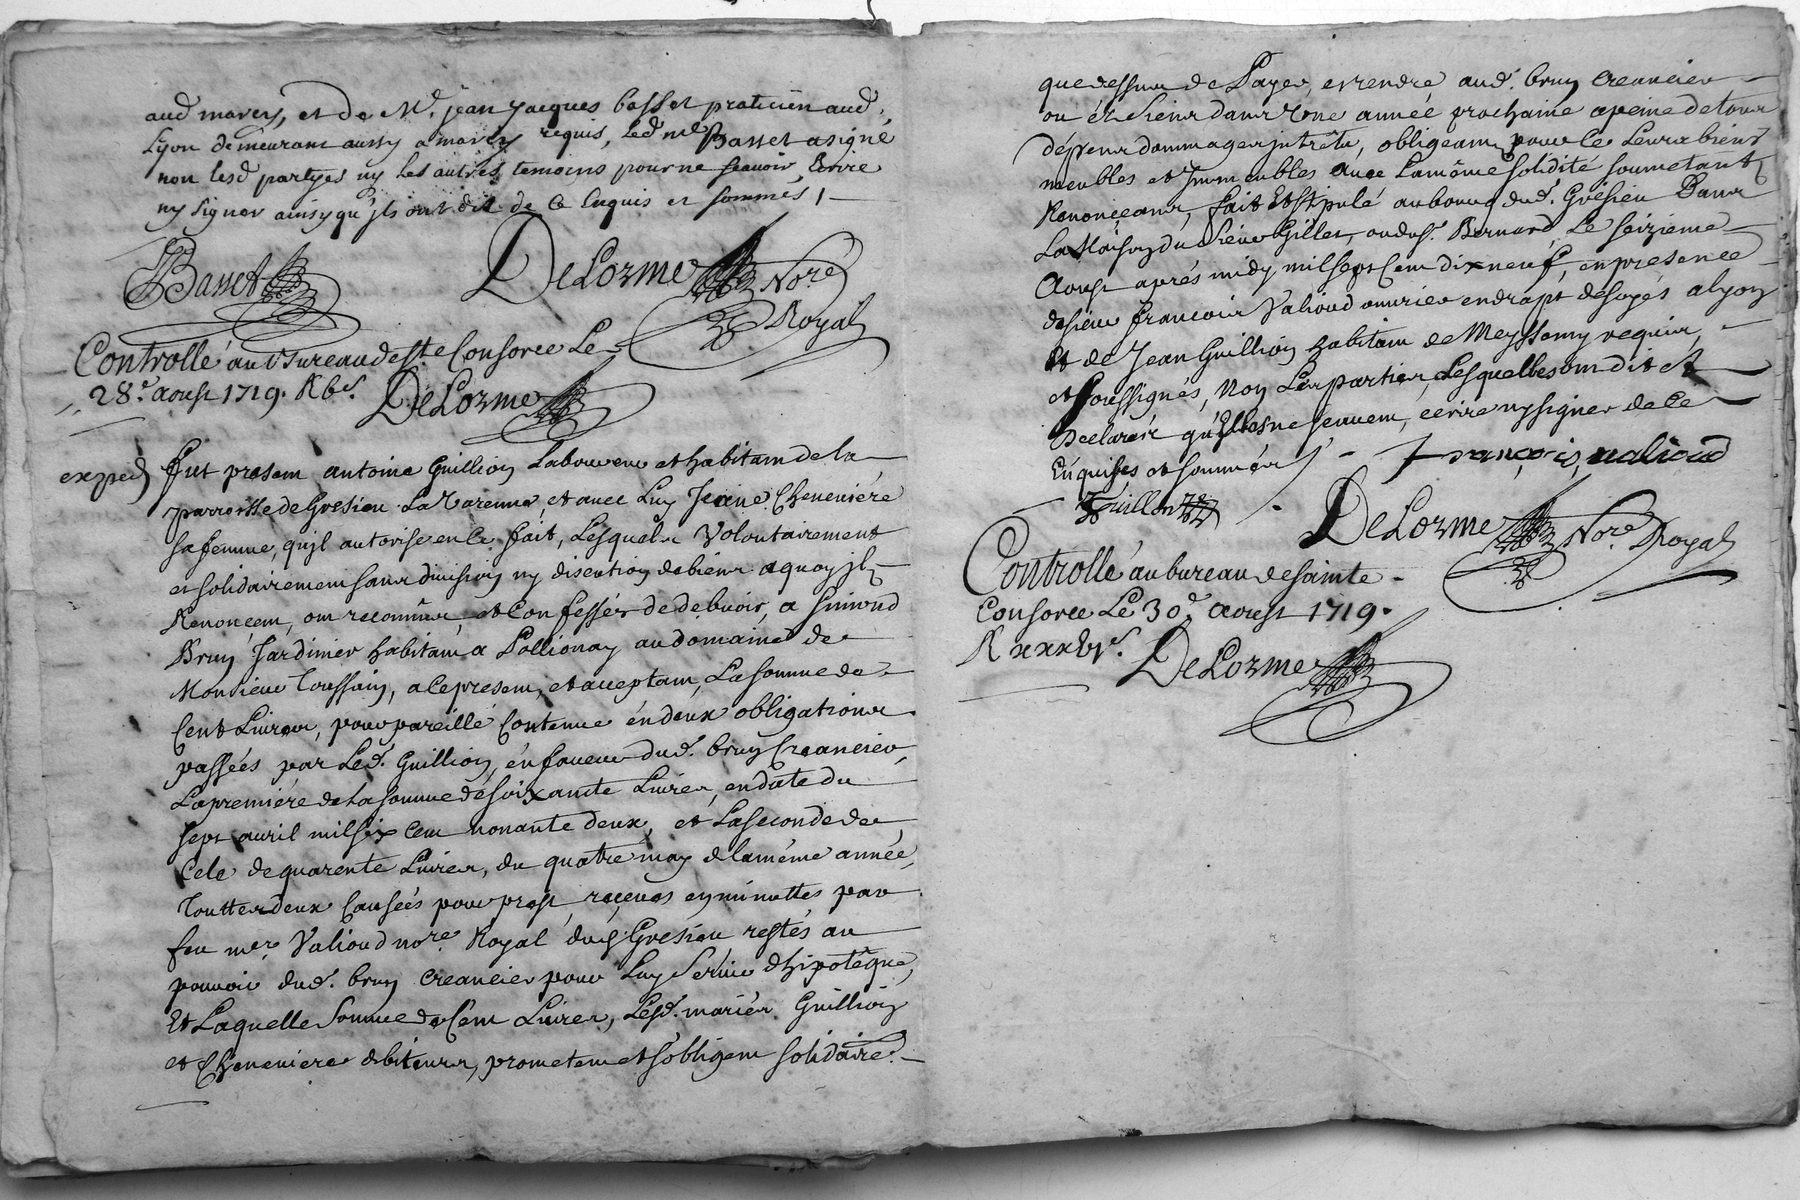 aud marcy, et de Mr. jean Jacques basset praticien aud.
Lyon demeurant aussy a marcy requis, led. me Basset a signé
non lesd partyes ny les autres temoins pour ne scavoir Ecrire
ny signer ainsy qu'jls ont dit de ce Enquis et sommés /
JBasset DeLorme Nore
Royal
Controllé au bureau de Ste Consorce Le
28e. aoust 1719. R
DeLorme
exped
fut present antoine Guillion Laboureur et habitant de la
parroisse de Gresieu La Varenne, et avec Luy Jeane Chenevière
sa femme, qu'jl autorise en le fait, Lesquels Volontairement
et solidairement sans division ny discution de biens a quoy jls
Renoncent, ont reconnus et Confessés de debvoir, a simond
Bruy Jardinier habitant a Pollionay au domaine de
Monsieur Toussain, a Ce present, et acceptant, La somme de
Cent Livres, pour pareille Contenue en deux obligations
passées par Led. Guillion, en faveur dud. bruy Creancier,
La premiére de la somme de soixante Livres, en date du
sept avril mil six Cent nonante deux, et La seconde de
Cele de quarente Livres, du quatre may de la méme année,
Touttes deux Causées pour prest, reçeues en minuttes par
feu mer. Valioud nore Royal dud. Gresieu restés au
pouvoir dud. bruy creancier pour Luy servir dhipotêque,
Et Laquelle somme de Cent Livres, Lesd. mariés Guillion
et Cheneviere debiteurs, prometent et s'obligent solidaire.
que dessus de Payer, et rendre aud. bruy Creancier
ou és siens dans Une année prochaine a peine de tous
dépens dommages jntrêts, obligeant pour Ce Leurs biens
meubles et Jmmeubles avec La même solidité soumetants
Renonceans, fait Et stipulé au bourg dud. Grésieu Dans
La Maison du sieur Gilles, Bernard, Le seizieme
Aoust aprés midy mil sept Cent dix neuf, en presence
de sieur françois Valioud ouvrier en draps de soyés a lyon
et de Jean Guillion habitant de Meyssemy requis,
et soussignés, Non Les parties, Lesquelles ont dit et
Declarér qu'Elles ne sçauent, écrire ny signer de Ce
Enquises et sommées / françois ualioud
Guillon DeLorme Nore Royal
Controllé au bureau de sainte
Consorce Le 30e. aoust 1719.
R
DeLorme